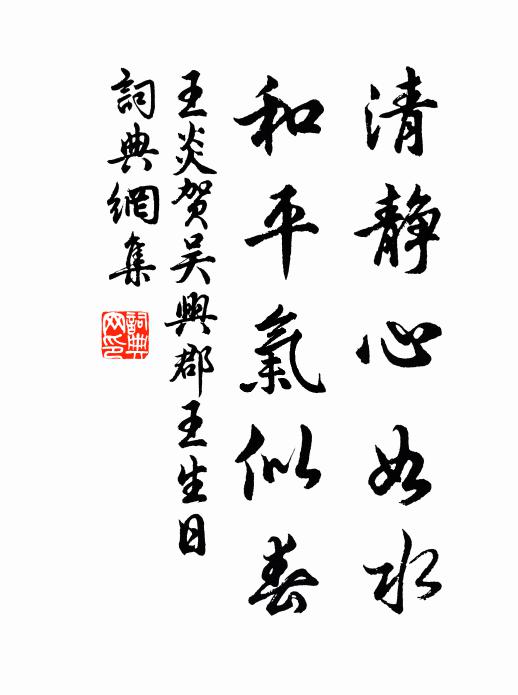 清静心如水
和平氣似春
王炎賀吴興郡王生日
詞典網集
詞典
网印